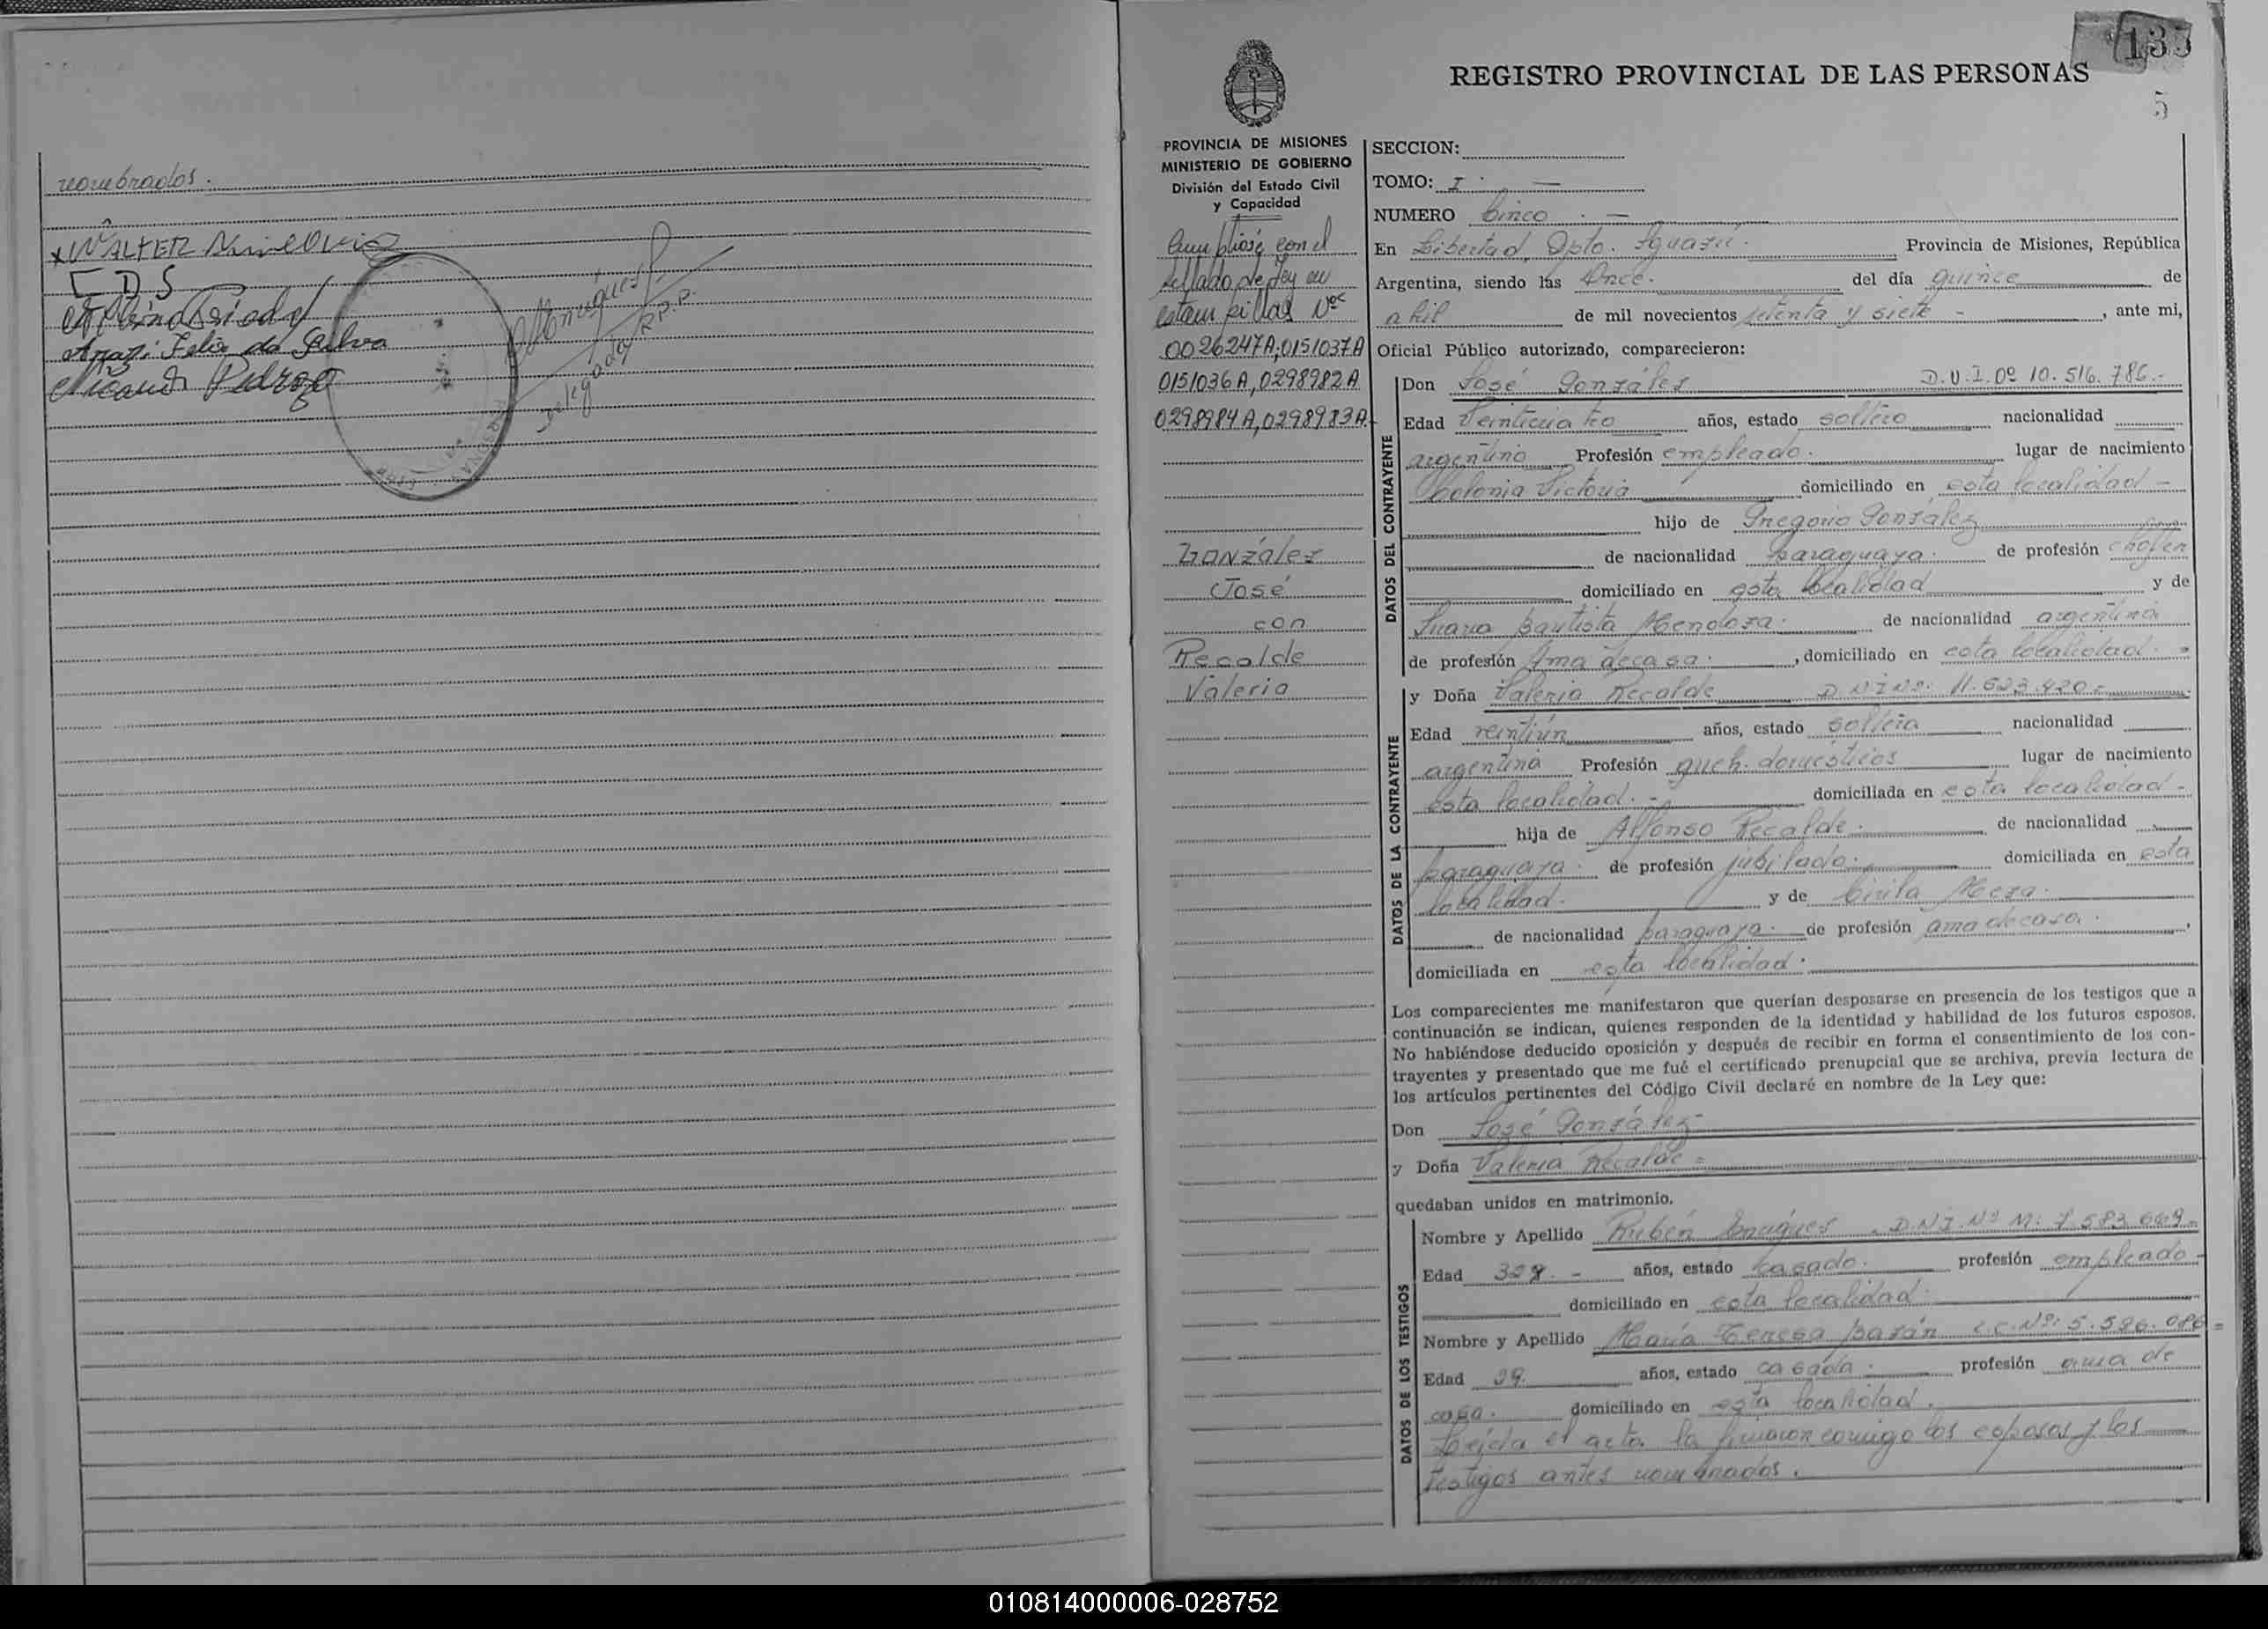 nombrados.
x WALTER
C D S
Anazi Felix da Silva
Pedrozo
Delegado R.P.P.
135
REGISTRO PROVINCIAL DE LAS PERSONAS
5
PROVINCIA DE MISIONES
MINISTERIO DE GOBIERNO
División del Estado Civil
y Capacidad
Cumpliose con el
sellado de ley en
estampillas Nos
0026247A, 0151037A
0151036A, 0298982A
0298984A, 0298983A.
González
José
con
Recalde
Valeria
SECCION:
TOMO: I. —
NUMERO Cinco. —
En Libertad, Dpto. Iguazú. Provincia de Misiones, República
Argentina, siendo las Once. del día quince de
abril de mil novecientos setenta y siete - , ante mi,
Oficial Público autorizado, comparecieron:
DATOS DEL CONTRAYENTE
Don José González D.N.I. Nº 10.516.786.-
Edad Veinticuatro años, estado soltero nacionalidad
argentino Profesión empleado. lugar de nacimiento
Colonia Victoria domiciliado en esta localidad -
hijo de Gregorio González
de nacionalidad paraguaya. de profesión chofer
domiciliado en esta localidad y de
Juana Bautista Mendoza. de nacionalidad argentina
de profesión Ama de casa. , domiciliado en esta localidad. -
DATOS DE LA CONTRAYENTE
y Doña Valeria Recalde D.N.I Nº. 11.623.420 -
Edad veintiún años, estado soltera nacionalidad
argentina Profesión queh. domésticos lugar de nacimiento
esta localidad. - domiciliada en esta localidad -
hija de Alfonso Recalde. de nacionalidad
paraguaya. de profesión jubilado. domiciliada en esta
localidad. y de Cirila Meza.
de nacionalidad paraguaya. de profesión ama de casa. ,
domiciliada en esta localidad.
Los comparecientes me manifestaron que querían desposarse en presencia de los testigos que a
continuación se indican, quienes responden de la identidad y habilidad de los futuros esposos.
No habiéndose deducido oposición y después de recibir en forma el consentimiento de los con-
trayentes y presentado que me fué el certificado prenupcial que se archiva, previa lectura de
los artículos pertinentes del Código Civil declaré en nombre de la Ley que:
Don José González -
y Doña Valeria Recalde =
quedaban unidos en matrimonio.
DATOS DE LOS TESTIGOS
Nombre y Apellido Rubén D.N.I. Nº M: 7.583.669 -
Edad años, estado casado. profesión empleado -
domiciliado en esta localidad.
Nombre y Apellido María Teresa Bazán L.C. Nº: 5.586.086 =
Edad años, estado casada. profesión ama de
casa. domiciliado en esta localidad.
Leída el acta la firmaron conmigo los esposos y los
testigos antes nombrados.
010814000006-028752